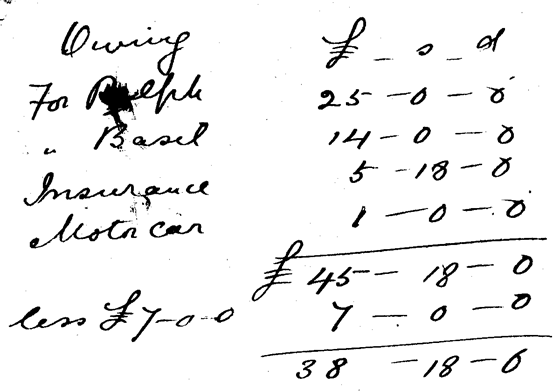 Owing £ - s - d
For Ralph 25 - 0 - 0
" Basil 14 - 0 - 0
Insurance 5 - 18 - 0
Motor car 1 - 0 - 0
£ 45 - 18 - 0
less £7-0-0 7 - 0 - 0
38 - 18 - 0